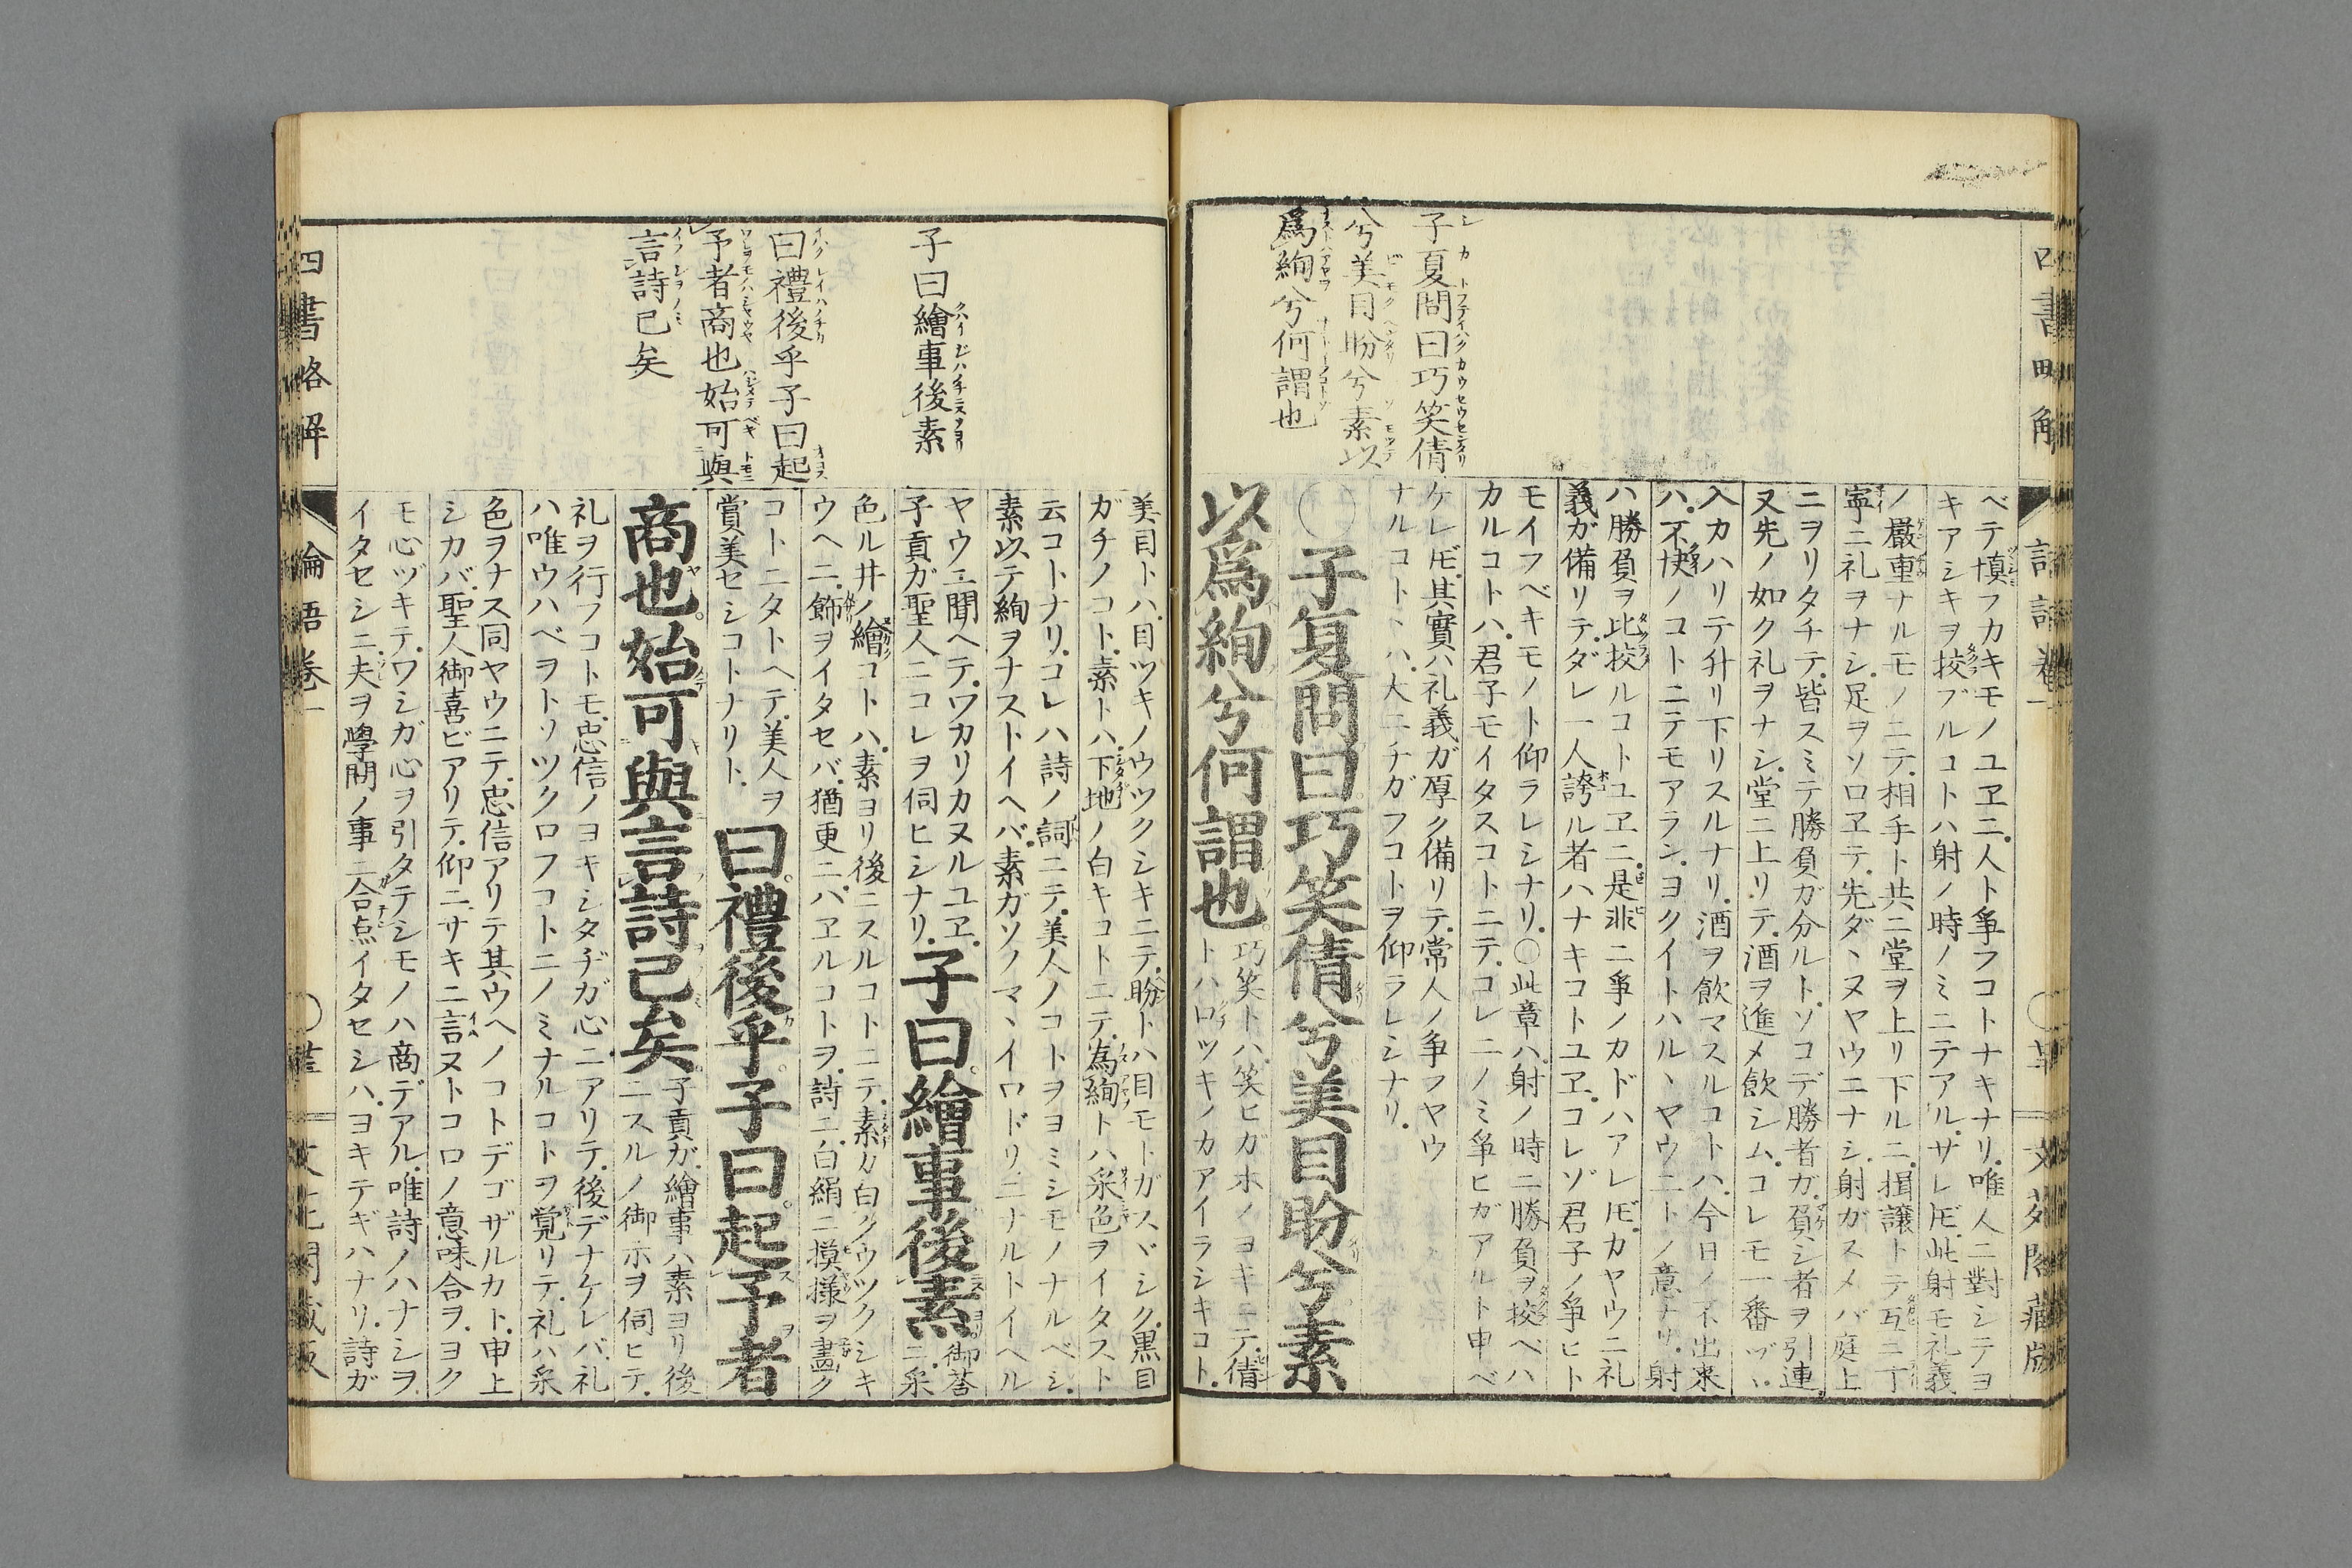 子夏問曰巧笑倩
兮美目盼兮素以
爲絢兮何謂也
ベテ慎フカキモノユヱニ人ト爭フコトナキナリ唯人ニ對シテヨ
キアシキヲ挍ブルコトハ射ノ時ノミニテアルサレ𪜈此射モ礼義
ノ嚴重ナルモノニテ相手ト共ニ堂ヲ上リ下ルニ揖譲トテ互ニ丁
寧ニ礼ヲナシ足ヲソロヱテ先ダヽヌヤウニナシ射ガスメバ庭上
ニヲリタチテ皆スミテ勝負ガ分ルトソコデ勝者ガ負シ者ヲ引連
又先ノ如ク礼ヲナシ堂ニ上リテ酒ヲ進メ飲シムコレモ一番ヅヽ
入カハリテ升リ下リスルナリ酒ヲ飲マスルコトハ今日ノ不出来
ハ不快ノコトニテモアランヨクイトハルヽヤウニトノ意ナリ射
ハ勝負ヲ比挍ルコトユヱニ是非ニ爭ノカドハアレ𪜈カヤウニ礼
義ガ備リテダレ一人誇ル者ハナキコトユヱコレゾ君子ノ爭ヒト
モイフベキモノト仰ラレシナリ〇此章ハ射ノ時ニ勝負ヲ挍ベハ
カルコトハ君子モイタスコトニテコレニノミ爭ヒガアルト申ベ
ケレ𪜈其實ハ礼義ガ厚ク備リテ常人ノ爭フヤウ
ナルコトヽハ大ニチガフコトヲ仰ラレシナリ
〇子夏問曰巧笑倩兮美目盼兮素
以爲絢兮何謂也
巧笑トハ笑ヒガホノヨキニテ倩
トハ口ツキノカアイラシキコト
子曰繪事後素
曰禮後乎子曰起
予者商也始可與
言詩已矣
美目トハ目ツキノウツクシキニテ盼トハ目モトガスヾシク黒目
ガチノコト素トハ下地ノ白キコトニテ為絢トハ采色ヲイタスト
云コトナリコレハ詩ノ詞ニテ美人ノコトヲヨミシモノナルベシ
素以テ絢ヲナストイヘバ素ガソノマヽイロドリニナルトイヘル
ヤウニ聞ヘテワカリカヌルユヱ
子貢ガ聖人ニコレヲ伺ヒシナリ
子曰繪事後素
御荅ニ采
色ル井ノ繪コトハ素ヨリ後ニスルコトニテ素ガ白クウツクシキ
ウヘニ飾ヲイタセバ猶更ニハヱルコトヲ詩ニ白絹ニ摸様ヲ畫ク
コトニタトヘテ美人ヲ
賞美セシコトナリト
曰禮後乎子曰起予者
商也始可與言詩已矣
子貢ガ繪事ハ素ヨリ後
ニスルノ御ホヲ伺ヒテ
礼ヲ行フコトモ忠信ノヨキシタヂガ心ニアリテ後デナケレバ礼
ハ唯ウハベヲトリツクロフコトニノミナルコトヲ覚リテ礼ハ采
色ヲナス同ヤウニテ忠信アリテ其ウヘノコトデゴザルカト申上
シカバ聖人御喜ビアリテ仰ニサキニ言ヌトコロノ意味合ヲヨク
モ心ヅキテワシガ心ヲ引タテシモノハ商デアル唯詩ノハナシヲ
イタセシニ夫ヲ學問ノ事ニ合点イタセシハヨキテギハナリ詩ガ
四書略解
論語卷一